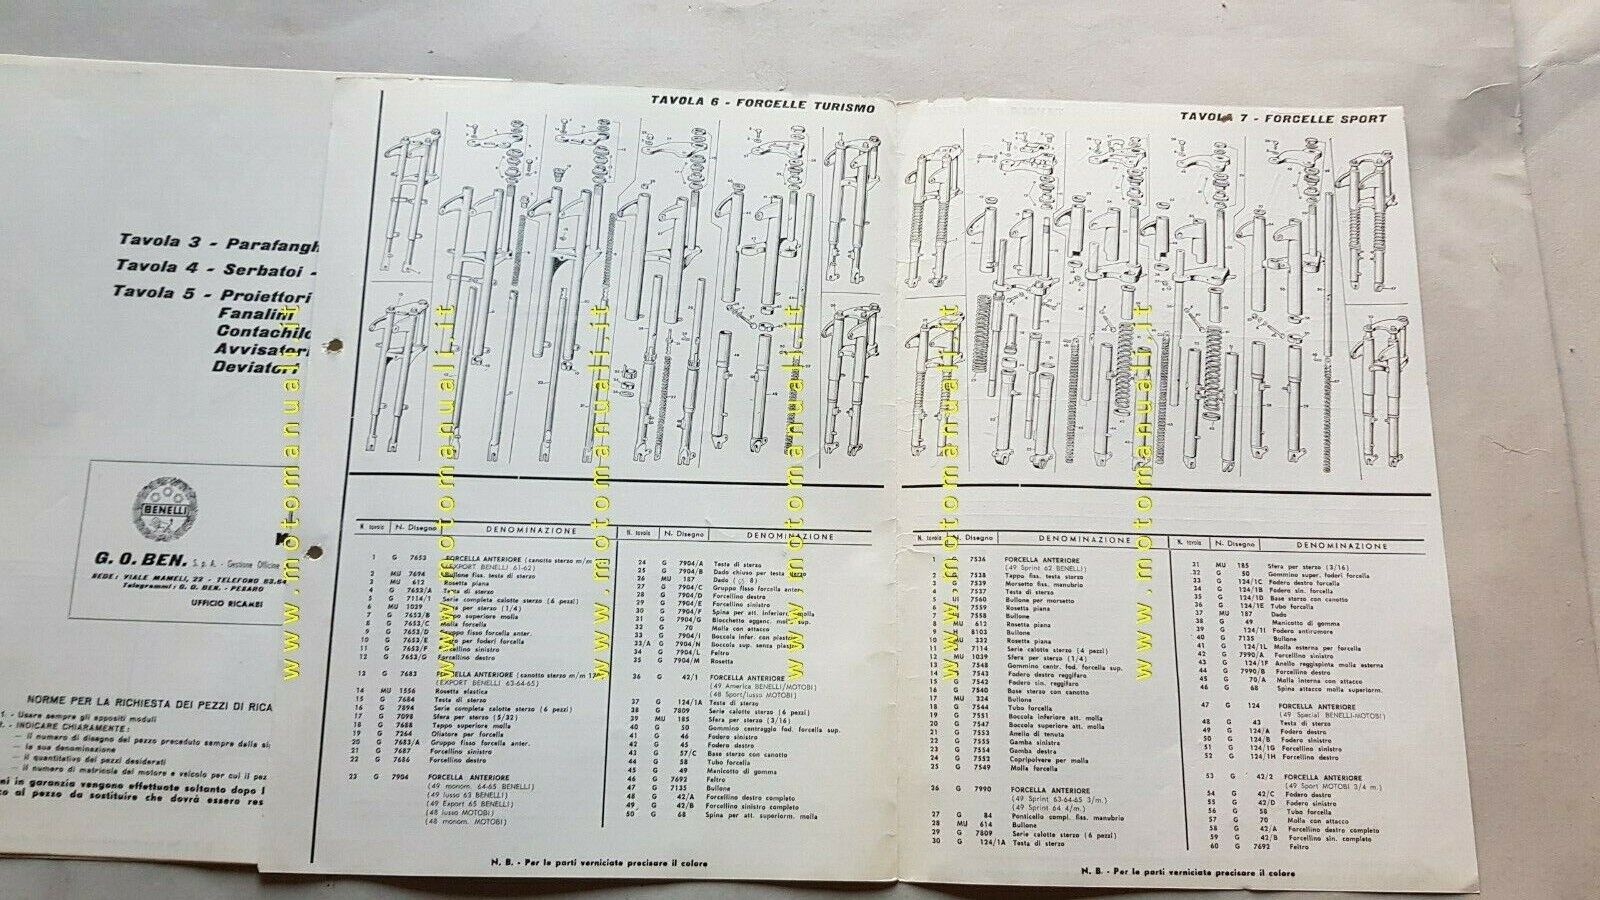 Tavola 3 - Parafangh
Tavola 4 - Serbatoi -
Tavola 5 - Proiettori
Fanalini
Contachilo
Avvisatori
Deviatori
BENELLI
G. O. BEN. S. p. A. - Gestione Officine
SEDE: VIALE MAMELI, 22 - TELEFONO 83.64
Telegrammi: G. O. BEN. - PESARO
UFFICIO RICAMBI
NORME PER LA RICHIESTA DEI PEZZI DI RICA
1. - Usare sempre gli appositi moduli
2. - INDICARE CHIARAMENTE:
— il numero di disegno del pezzo preceduto sempre dalla si
— la sua denominazione
— il quantitativo dei pezzi desiderati
— il numero di matricola del motore e veicolo per cui il pez
ni in garanzia vengono effettuate soltanto dopo l
co al pezzo da sostituire che dovrà essere res
TAVOLA 6 - FORCELLE TURISMO
N. tavola N. Disegno DENOMINAZIONE
1 G 7653 FORCELLA ANTERIORE (canotto sterzo m/m
(EXPORT BENELLI 61-62)
2 MU 7694 Bullone fiss. testa di sterzo
3 MU 612 Rosetta piana
4 G 7653/A Testa di sterzo
5 G 7114/1 Serie complete calotte sterzo (6 pezzi)
6 MU 1029 Sfera per sterzo (1/4)
7 G 7653/B Tappo superiore molla
8 G 7653/C Molla forcella
9 G 7653/D Gruppo fisso forcella anter.
10 G 7653/E per foderi forcella
11 G 7653/F Forcellino sinistro
12 G 7653/G Forcellino destro
13 G 7683 FORCELLA ANTERIORE (canotto sterzo m/m
(EXPORT BENELLI 63-64-65)
14 MU 1556 Rosetta elastica
15 G 7684 Testa di sterzo
16 G 7894 Serie complete calotte sterzo (6 pezzi)
17 G 7098 Sfera per sterzo (5/32)
18 G 7688 Tappo superiore molla
19 G 7264 Oliatore per forcella
20 G 7683/A Gruppo fisso forcella anter.
21 G 7687 Forcellino sinistro
22 G 7686 Forcellino destro
23 G 7904 FORCELLA ANTERIORE
(49 monom. 64-65 BENELLI)
(49 lusso 63 BENELLI)
(49 Export 65 BENELLI)
(48 lusso MOTOBI)
(48 monom. MOTOBI)
N. tavola N. Disegno DENOMINAZIONE
24 G 7904/A Testa di sterzo
25 G 7904/B Dado chiuso per testa sterzo
26 MU 187 Dado (∅ 8)
27 G 7904/C Gruppo fisso forcella anter.
28 G 7904/D Forcellino destro
29 G 7904/E Forcellino sinistro
30 G 7904/F Spina per att. inferiore molla
31 G 7904/G Blocchetto aggenc. moll. sup.
32 G 70 Molla con attacco
33 G 7904/I Boccola infer. con piastrina
33/A G 7904/N Boccola sup. senza piastrina
34 G 7904/L Feltro
35 G 7904/M Rosetta
36 G 42/1 FORCELLA ANTERIORE
(49 America BENELLI/MOTOBI)
(48 Sport/lusso MOTOBI)
37 G 124/1A Testa di sterzo
38 G 7809 Serie calotte sterzo (6 pezzi)
39 MU 185 Sfera per sterzo (3/16)
40 G 50 Gommino centraggio fod. forcella sup.
41 G 46 Fodero sinistro
42 G 45 Fodero destro
43 G 57/C Base sterzo con canotto
44 G 58 Tubo forcella
45 G 49 Manicotto di gomma
46 G 7692 Feltro
47 G 7135 Bullone
48 G 42/A Forcellino destro completo
49 G 42/B Forcellino sinistro completo
50 G 68 Spina per att. superiorm. molla
N. B. - Per le parti verniciate precisare il colore
TAVOLA 7 - FORCELLE SPORT
N. tavola N. Disegno DENOMINAZIONE
1 G 7536 FORCELLA ANTERIORE
(49 Sprint 62 BENELLI)
2 G 7538 Tappo fiss. testa sterzo
3 G 7539 Morsetto fiss. manubrio
4 G 7537 Testa di sterzo
5 UI 7560 Bullone per morsetto
6 G 7559 Rosetta piana
7 G 7558 Bullone
8 MU 612 Rosetta piana
9 H 8103 Bullone
10 MU 332 Rosetta piana
11 G 7114 Serie calotte sterzo (4 pezzi)
12 MU 1039 Sfera per sterzo (1/4)
13 G 7548 Gommino centr. fod. forcella sup.
14 G 7543 Fodero destro reggifaro
15 G 7542 Fodero sin. reggifaro
16 G 7540 Base sterzo con canotto
17 MU 324 Bullone
18 G 7544 Tubo forcella
19 G 7551 Boccola inferiore att. molla
20 G 7547 Boccola superiore att. molla
21 G 7553 Anello di tenuta
22 G 7555 Gamba sinistra
23 G 7554 Gamba destra
24 G 7552 Copripolvere per molla
25 G 7549 Molla forcella
26 G 7990 FORCELLA ANTERIORE
(49 Sprint 63-64-65 3/m.)
(49 Sprint 64 4/m.)
27 G 84 Ponticello compl. fiss. manubrio
28 MU 614 Bullone
29 G 7809 Serie calotte sterzo (6 pezzi)
30 G 124/1A Testa di sterzo
N. tavola N. Disegno DENOMINAZIONE
31 MU 185 Sfera per sterzo (3/16)
32 G 50 Gommino super. foderi forcella
33 G 124/1C Fodero destro forcella
34 G 124/1B Fodero sin. forcella
35 G 124/1D Base sterzo con canotto
36 G 124/1E Tubo forcella
37 MU 187 Dado
38 G 49 Manicotto di gomma
39 G 124/1I Fodero antirumore
40 G 7135 Bullone
41 G 124/1L Molla esterna per forcella
42 G 7990/A Forcellino sinistro
43 G 124/1F Anello reggispinta molla esterna
44 G 7990/B Forcellino destro
45 G 70/A Molla interna con attacco
46 G 68 Spina attacco molla superiorm.
47 G 124 FORCELLA ANTERIORE
(49 Special BENELLI-MOTOBI)
48 G 43 Testa di sterzo
49 G 124/A Fodero destro
50 G 124/B Fodero sinistro
51 G 124/1G Forcellino sinistro
52 G 124/1H Forcellino destro
53 G 42/2 FORCELLA ANTERIORE
(49 Sport MOTOBI 3/4 m.)
54 G 42/C Fodero destro
55 G 42/D Fodero sinistro
56 G 58 Tubo forcella
57 G 70 Molla con attacco
58 G 42/A Forcellino destro completo
59 G 42/B Forcellino sin. completo
60 G 7692 Feltro
N. B. - Per le parti verniciate precisare il colore
www.motomanuali.it
www.motomanuali.it
www.motomanuali.it
www.motomanuali.it
www.motomanuali.it
www.motomanuali.it